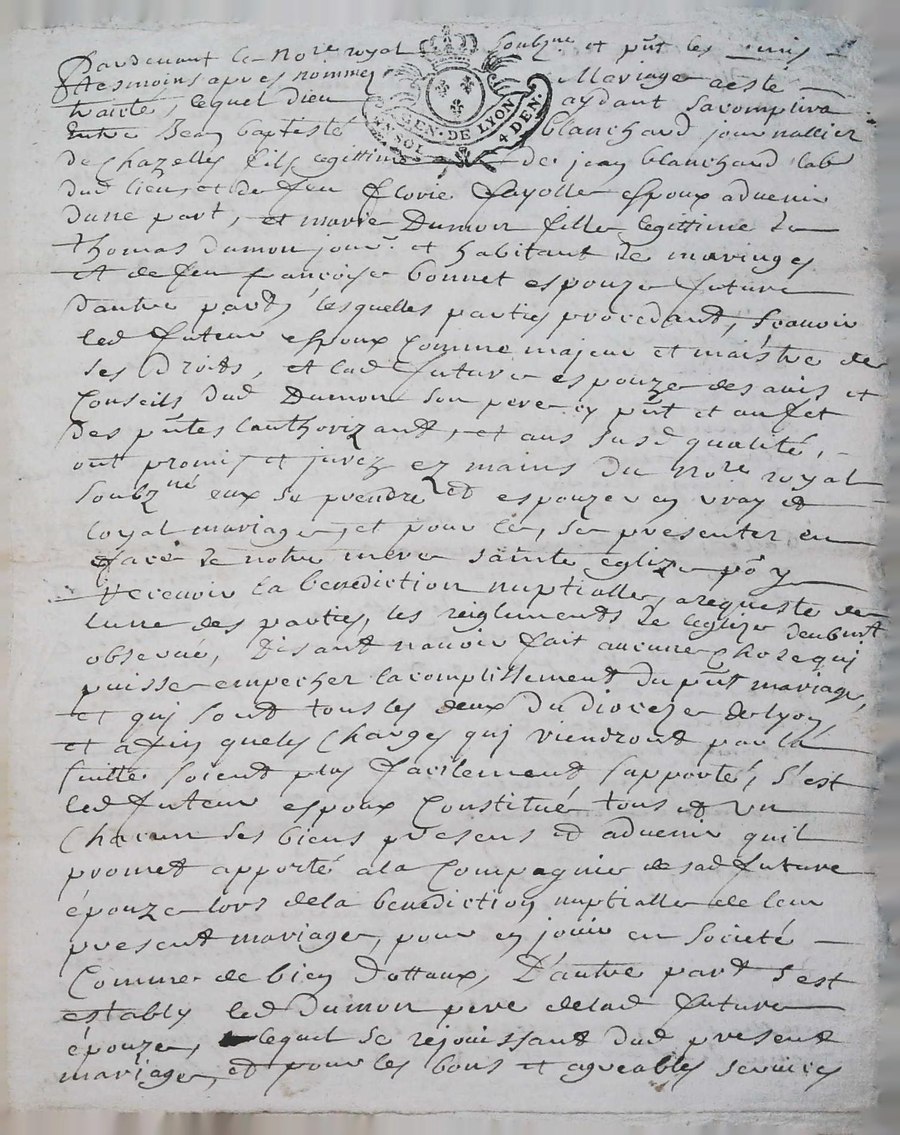 Pardevant le Nore royal soubzne et pn̄t les
tesmoins apres nommes Mariage a esté
traité, lequel dieu aydant sacomplira
GEN. DE LYON
UN SOL 4 DEN.
Entre Jean baptiste blanchard journallier
de Chazelles fils legittime de jean blanchard lab
dud lieu et de feu florie fayolle espoux advenir
dune part, et marie Dumon fille legittime de
thomas dumon jour. et habitant de maringes
et de feu françoise bonnet espouze future
dautre part, lesquelles parties procedant, scauoir
led futeur espoux Comme majeur et maistre de
ses Droits, et lad future espouze des auis et
Conseils dud Dumon son pere icy pn̄t et au fet
des pn̄tes lauthorizant, et aus susd qualité,
ont promis et jurez ez mains du Nore royal
soubzné eux se prendre et espouzer en vray et
loyal mariage, et pour ce, se presenter en
face de notre mere sainte eglize po y
recevoir la benediction nuptialle, a requeste de
lune des parties, les reiglements de leglize deubmt
obserué, Disant navoir fait aucune Chose qui
puisse empecher lacomplissement du pn̄t mariage,
et qui sont tous les deux du dioceze de lyon,
et afin que les Charges qui viendront par la
suitte soient plus facilement suporté, s'est
led futeur espoux Constitué tous et un
Chacun ses biens presens et advenir quil
promet apporté a la Compagnie de sad future
épouze lors dela benediction nuptialle de leur
present mariage, pour en jouir en societé
Comme de bien Dottaux, D'autre part s'est
estably led Dumon pere delad future
épouze, lequel se rejouissant dud present
mariage, et pour les bons et agreables services